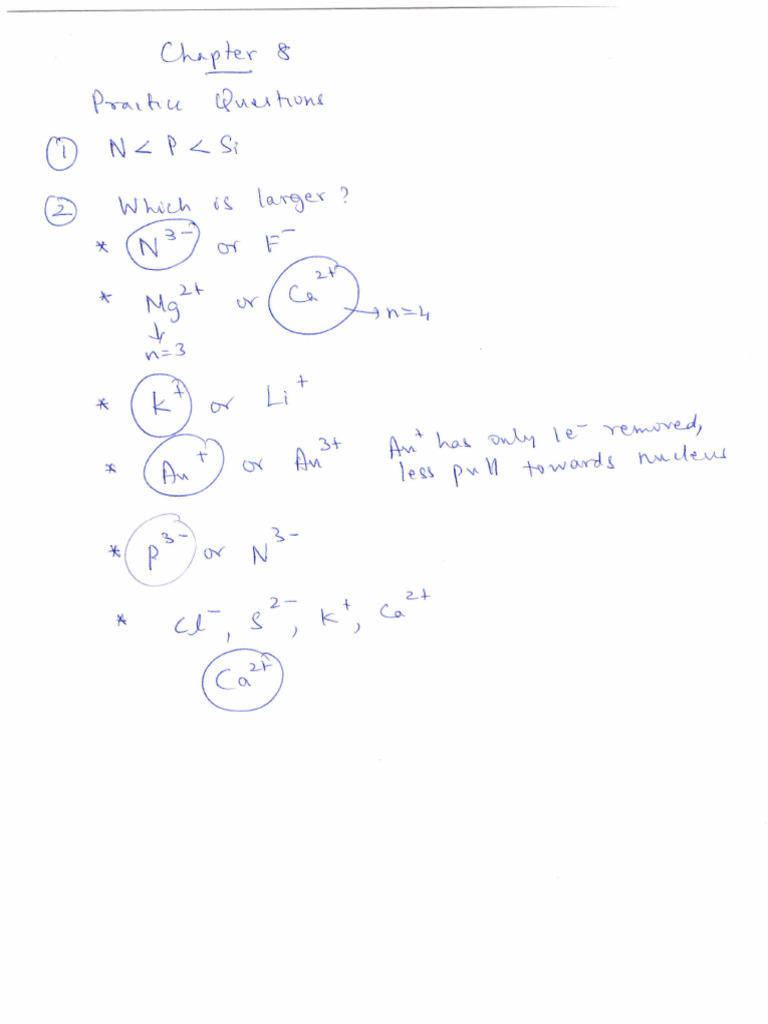 Chapter 8
Practice Questions
① N < P < Si
② Which is larger?
* N³⁻ or F⁻
* Mg²⁺ or Ca²⁺ → n=4
↓
n=3
* K⁺ or Li⁺
* Au⁺ or Au³⁺ Au⁺ has only 1e⁻ removed,
less pull towards nucleus
* P³⁻ or N³⁻
* Cl⁻, S²⁻, K⁺, Ca²⁺
Ca²⁺